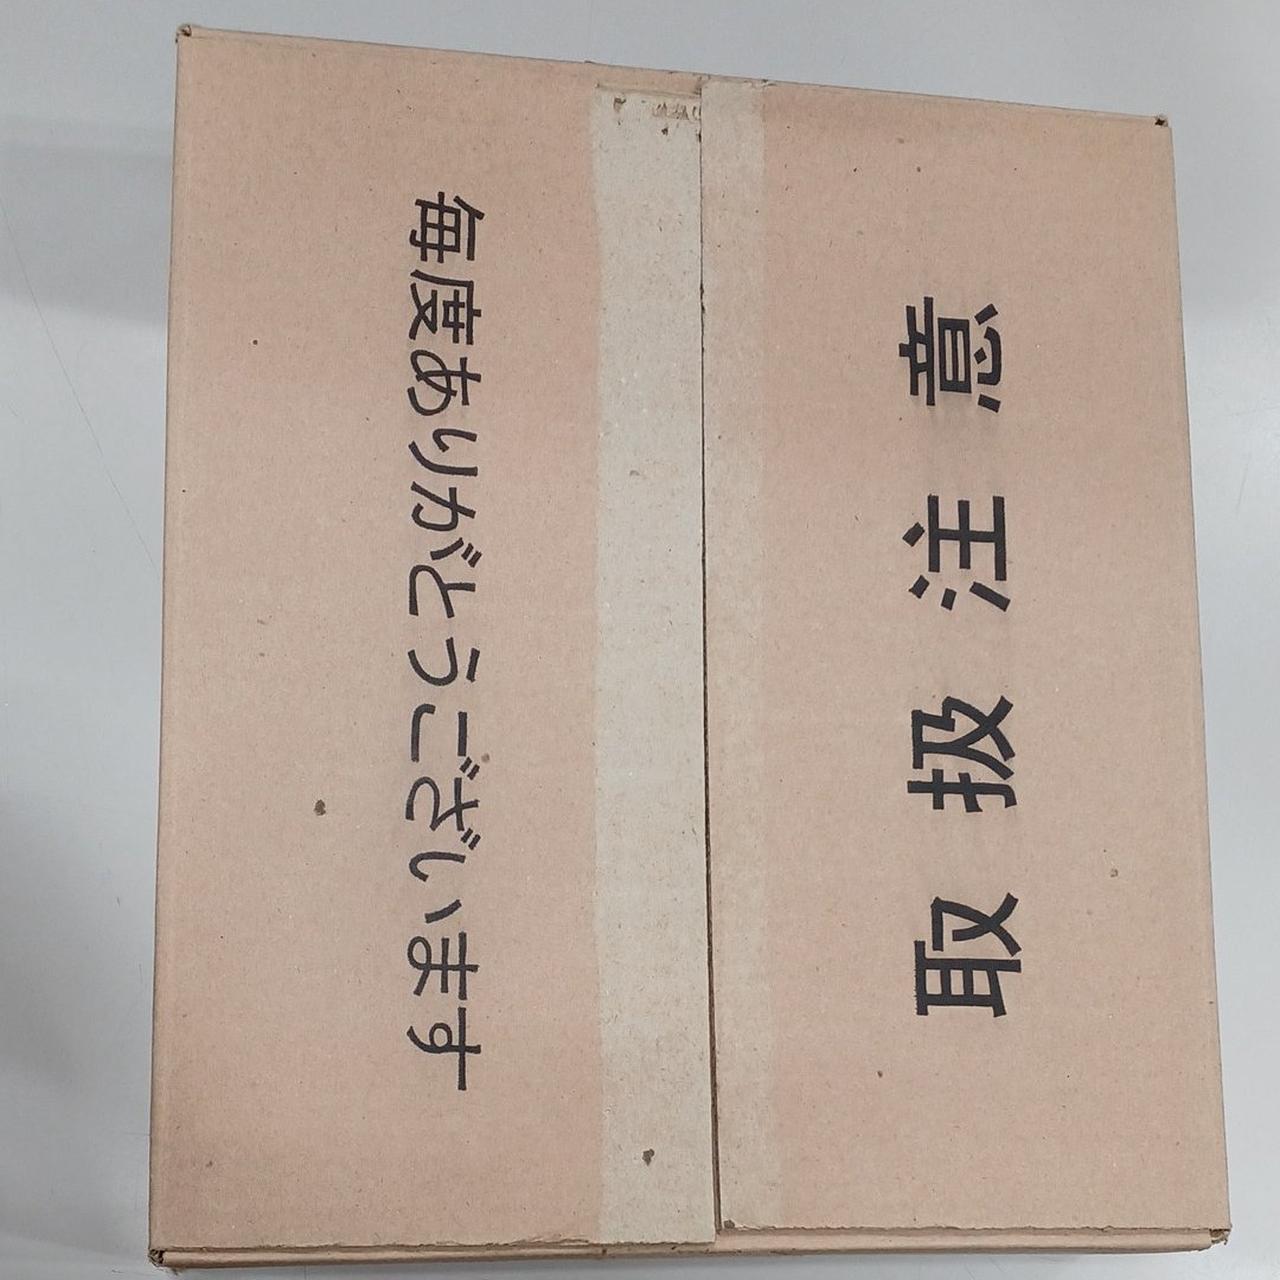 毎度ありがとうございます
取扱注意